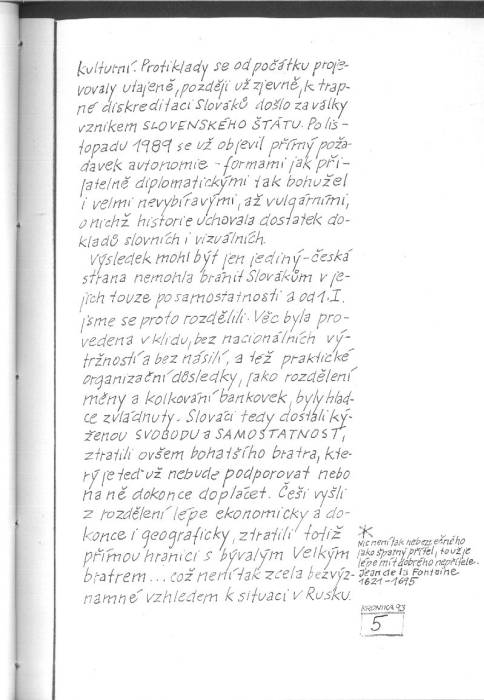 kulturní. Protiklady se od počátku proje-
vovaly utajeně, později už zjevně, k trap-
né diskreditaci Slováků došlo za války
vznikem SLOVENSKÉHO ŠTÁTU. Po lis-
topadu 1989 se už objevil přímý poža-
davek autonomie - formami jak pří-
jatelně diplomatickými tak bohužel
i velmi nevybíravými, až vulgárními,
o nichž historie uchovala dostatek do-
kladů slovních i vizuálních.
Výsledek mohl být jen jediný - česká
strana nemohla bránit Slovákům v je-
jich touze po samostatnosti a od 1. I.
jsme se proto rozdělili. Věc byla pro-
vedena v klidu, bez nacionálních vý-
tržností a bez násilí, a též praktické
organizační důsledky, jako rozdělení
měny a kolkování bankovek, byly hlad-
ce zvládnuty. Slováci tedy dostali ký-
ženou SVOBODU a SAMOSTATNOST,
ztratili ovšem bohatšího bratra, kte-
rý je teď už nebude podporovat nebo
na ně dokonce doplácet. Češi vyšli
z rozdělení lépe ekonomicky a do-
konce i geograficky, ztratili totiž
přímou hranici s bývalým Velkým
bratrem... což není tak zcela bezvýz-
namné vzhledem k situaci v Rusku.
*
Nic není tak nebezpečného
jako špatný přítel, to už je
lépe mít dobrého nepřítele.
Jean de la Fontaine
1621-1695
KRONIKA 93
5